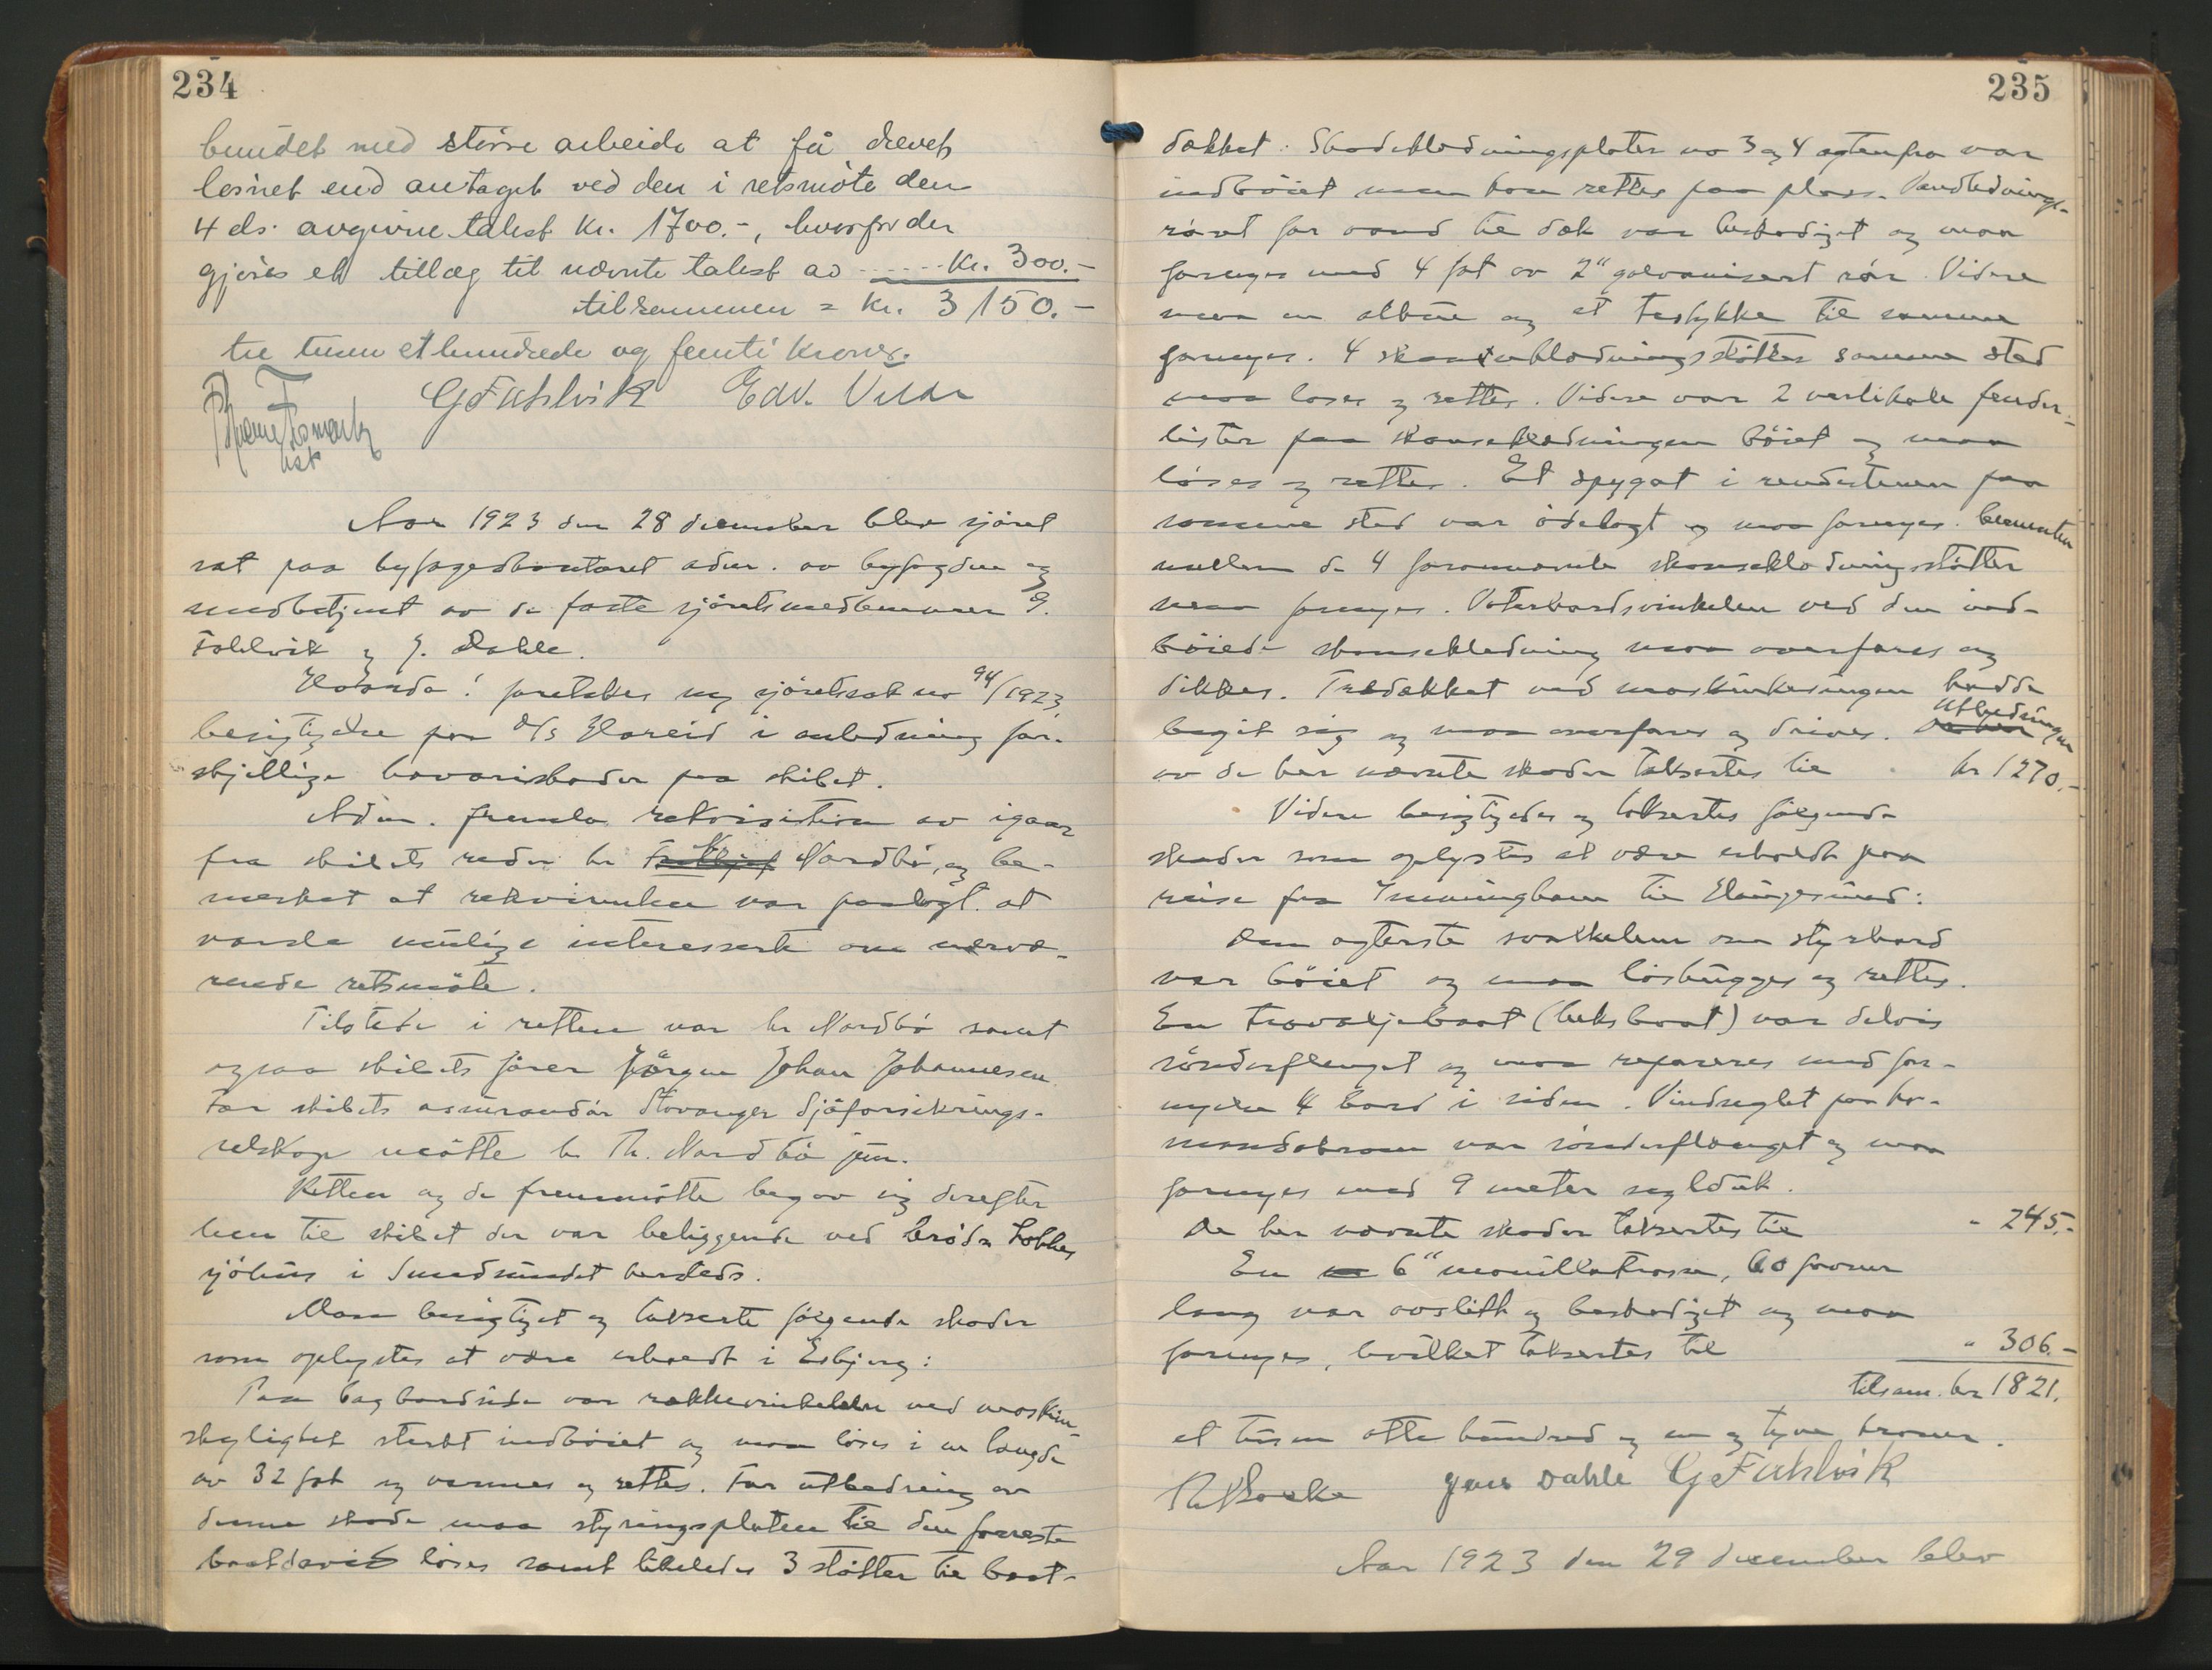 234
bundet med større arbeide at få drevet
løsnet end antaget ved den i retsmøte den
4 ds. avgivne takst Kr. 1700.-, hvorfor der
gjøres et tillæg til nævnte takst av ...... Kr. 300.-
tilsammen = Kr. 3150.-
tre tusen et hundrede og femti kroner.
G Fahlvik Edv.
Aar 1923 den 28 december blev sjøret
sat paa byfogedkontoret adm. av byfogden og
medbetjent av de faste sjøretsmedlemmer G.
Fahlvik og J. Dahle.
Hvorda! foretokes ny sjøretssak no 94/1923,
besigtigelse paa D/S Hareid i anledning for-
skjellige havariskader paa skibet.
Adm. fremla rekvisition av igaar
fra skibets reder hr Nordbø, og be-
merket at rekvirenten var paalagt at
varsle mulige interesserte om nærvæ-
rende retsmøte.
Tilstede i retten var hr Nordbø samt
ogsaa skibets fører Jørgen Johan Johannesen.
For skibets assurandør Stavanger Sjøforsikrings-
selskap møtte hr Th. Nordbø jun.
Retten og de fremmøtte begav sig derefter
hen til skibet der var beliggende ved brødr
sjøhus i Smedsundet hersteds.
Man besigtiget og takserte følgende skader
som oplystes at være erholdt i Esbjerg:
Paa bagbordside var rækkevinkelen ved maskin-
skylightet sterkt indbøiet og maa løses i en længde
av 32 fot og varmes og rettes. For utbedring av
denne skade maa styringsplaten til den forreste
baatdavid løses samt likeledes 3 støtter til baat-
235
dækket. Skandseklædningsplater no 3 og 4 agtenfra var
indbøiet men kan rettes paa plass. Vandlednings-
røret for vand til dæk var beskadiget og maa
fornyes med 4 fot av 2" galvanisert rør. Videre
maa en albue og et testykke til samme
fornyes. 4 skanseklædningsstøtter samme sted
maa løses og rettes. Videre var 2 vertikale fender-
lister paa skanseklædningen bøiet og maa
løses og rettes. Et spygat i rendestenen paa
samme sted var ødelagt og maa fornyes. Cementen
mellem de 4 forannævnte skanseklædningsstøtter
maa fornyes. Vaterbordsvinkelen ved den ind-
bøiede skanseklædning maa overfares og
dikkes. Trædækket ved maskinkasingen hadde
begit sig og maa overfares og drives. Utbedringen
av de her nævnte skader takseres til kr 1270.-
Videre besigtigedes og takseres følgende
skader som oplystes at være erholdt paa
reise fra Immingham til Haugesund:
Den agterste svalkelem om styrbord
var bøiet og maa løsbygges og rettes.
En travaljebaat (læksbaat) var delvis
sønderflenget og maa repareres med for-
nyelse 4 bord i siden. Vindseglet paa ko-
mandobroen var sønderflænget og maa
fornyes med 9 meter segldúk.
De her nævnte skader takseres til " 245.-
En 6" manillatrosse, 60 favner
lang var avslitt og beskadiget og maa
fornyes, hvilket takseres til " 306.-
tilsam. kr 1821.
et tusen otte hundred og en og tyve kroner.
Jens Dahle G Fahlvik
Aar 1923 den 29 december blev